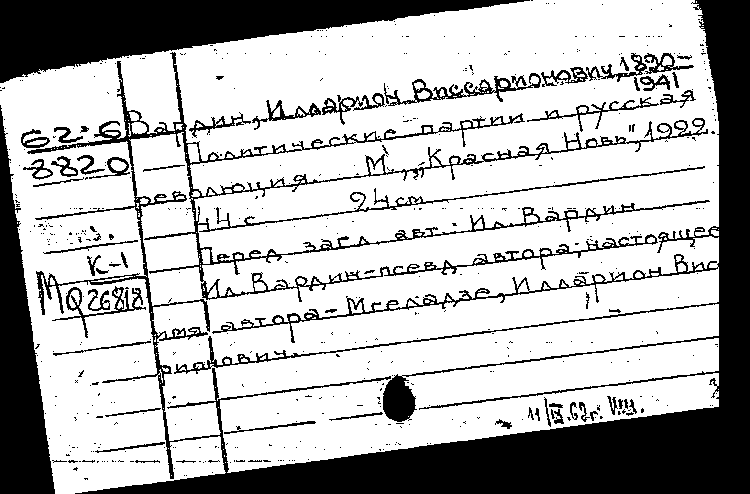 Вардин, Илларион Виссарионович, 1890-
1941
62-6
8820
Политические партии и русская
революция. М., „Красная Новь", 1922.
44 с 24 cm
Перед загл. авт.: Ил. Вардин
К-1
Ил. Вардин-псевд автора; настоящее
MQ 26818
имя автора-Мгеладзе, Илларион Вис
рионович.
11/IX.62г.